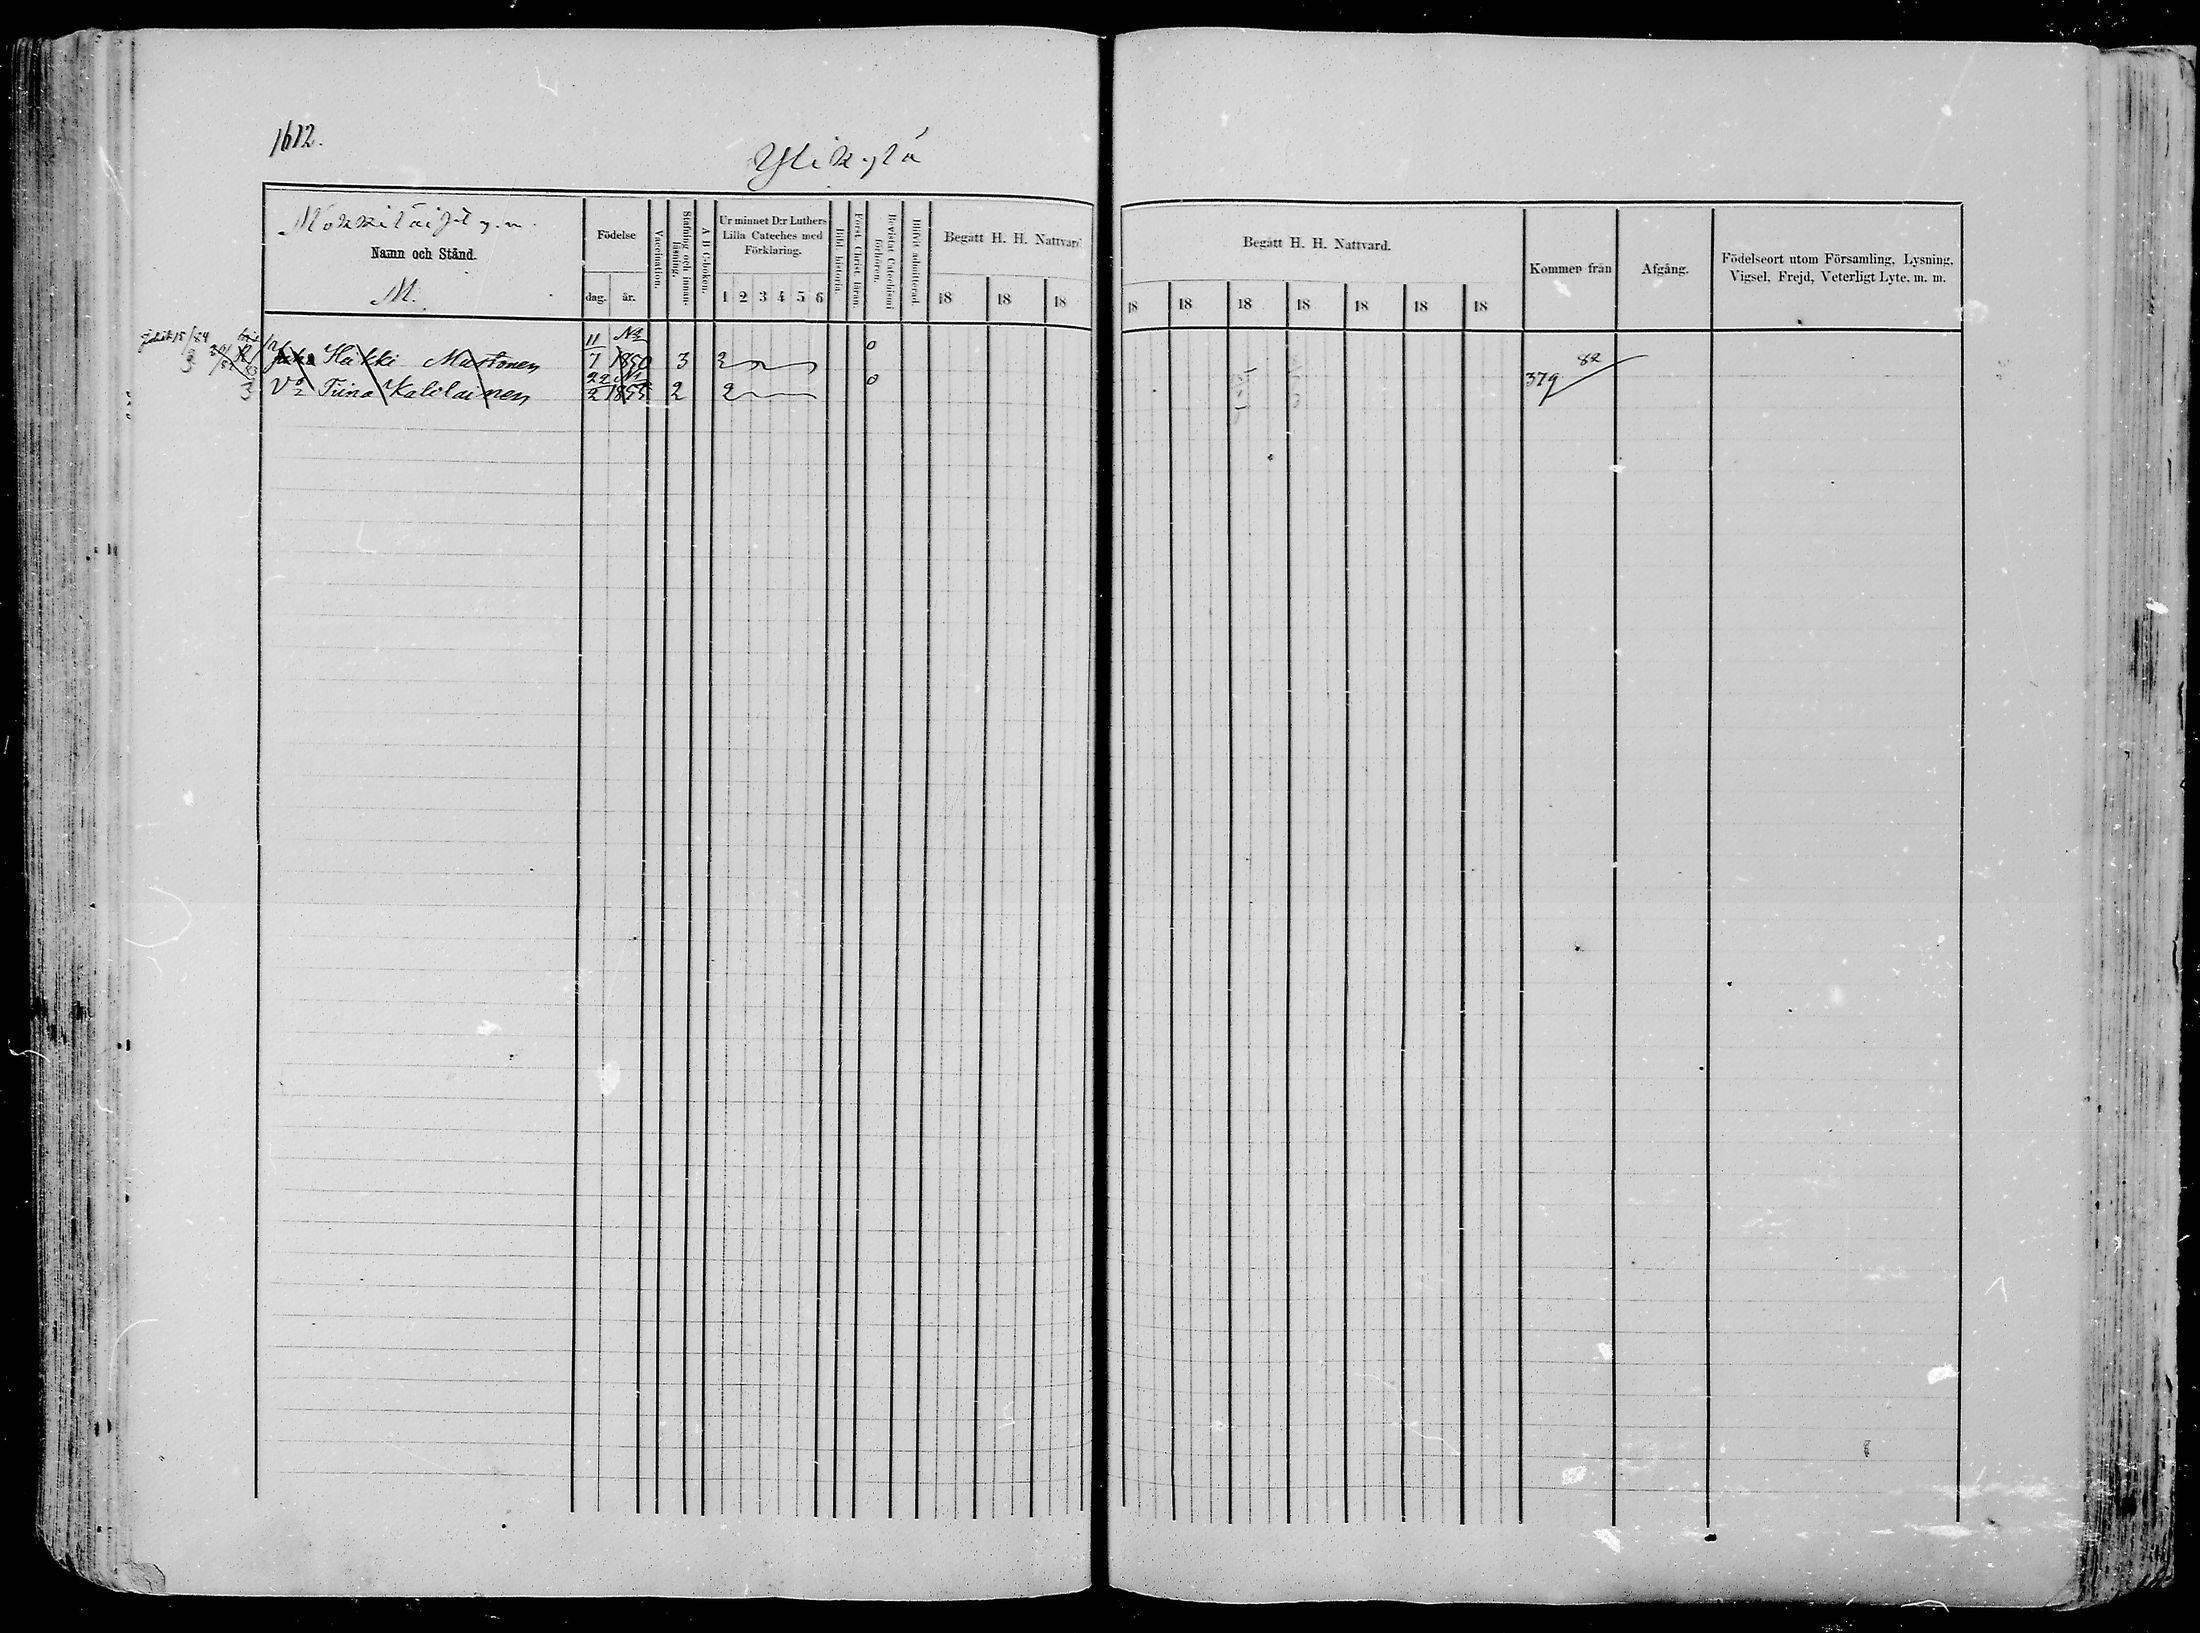 1612.
Ylikylä
Namn och Stånd.
M.
Födelse
dag. år.
Vaccination.
Stafning och innanläsning.
A B C-boken.
Ur minnet D:r Luthers
Lilla Cateches med
Förklaring.
1 2 3 4 5 6
Bibl. historia.
Först. Christ. läran.
Bevistat Catechismi förhören.
Blifvit admitterad.
Begått H. H. Nattvard
18 18 18
Begått H. H. Nattvard.
18 18 18 18 18 18 18
Kommer från
Afgång.
Födelseort utom Församling, Lysning,
Vigsel, Frejd, Veterligt Lyte, m. m.
15/84
Juho Heikki Mustonen 11/7 1850 3 2 0
379 82
3 Vo Tiina Kalilainen 22/2 1855 2 2 0